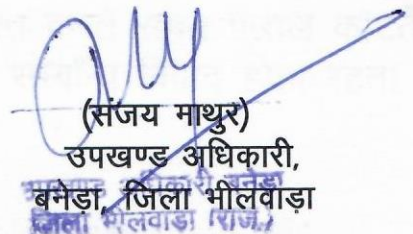 (संजय माथुर)
उपखण्ड अधिकारी,
बनेड़ा, जिला भीलवाड़ा
उपखण्ड अधिकारी बनेड़ा
जिला भीलवाड़ा (राज.)